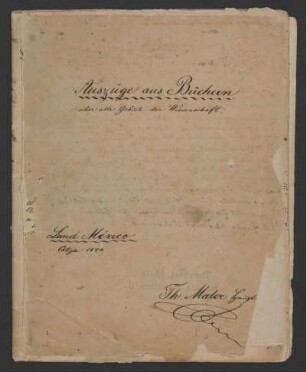 Auszüge aus Büchern
über alle Gebiete der Wissenschaft.
Land México
1890
Th. Maler